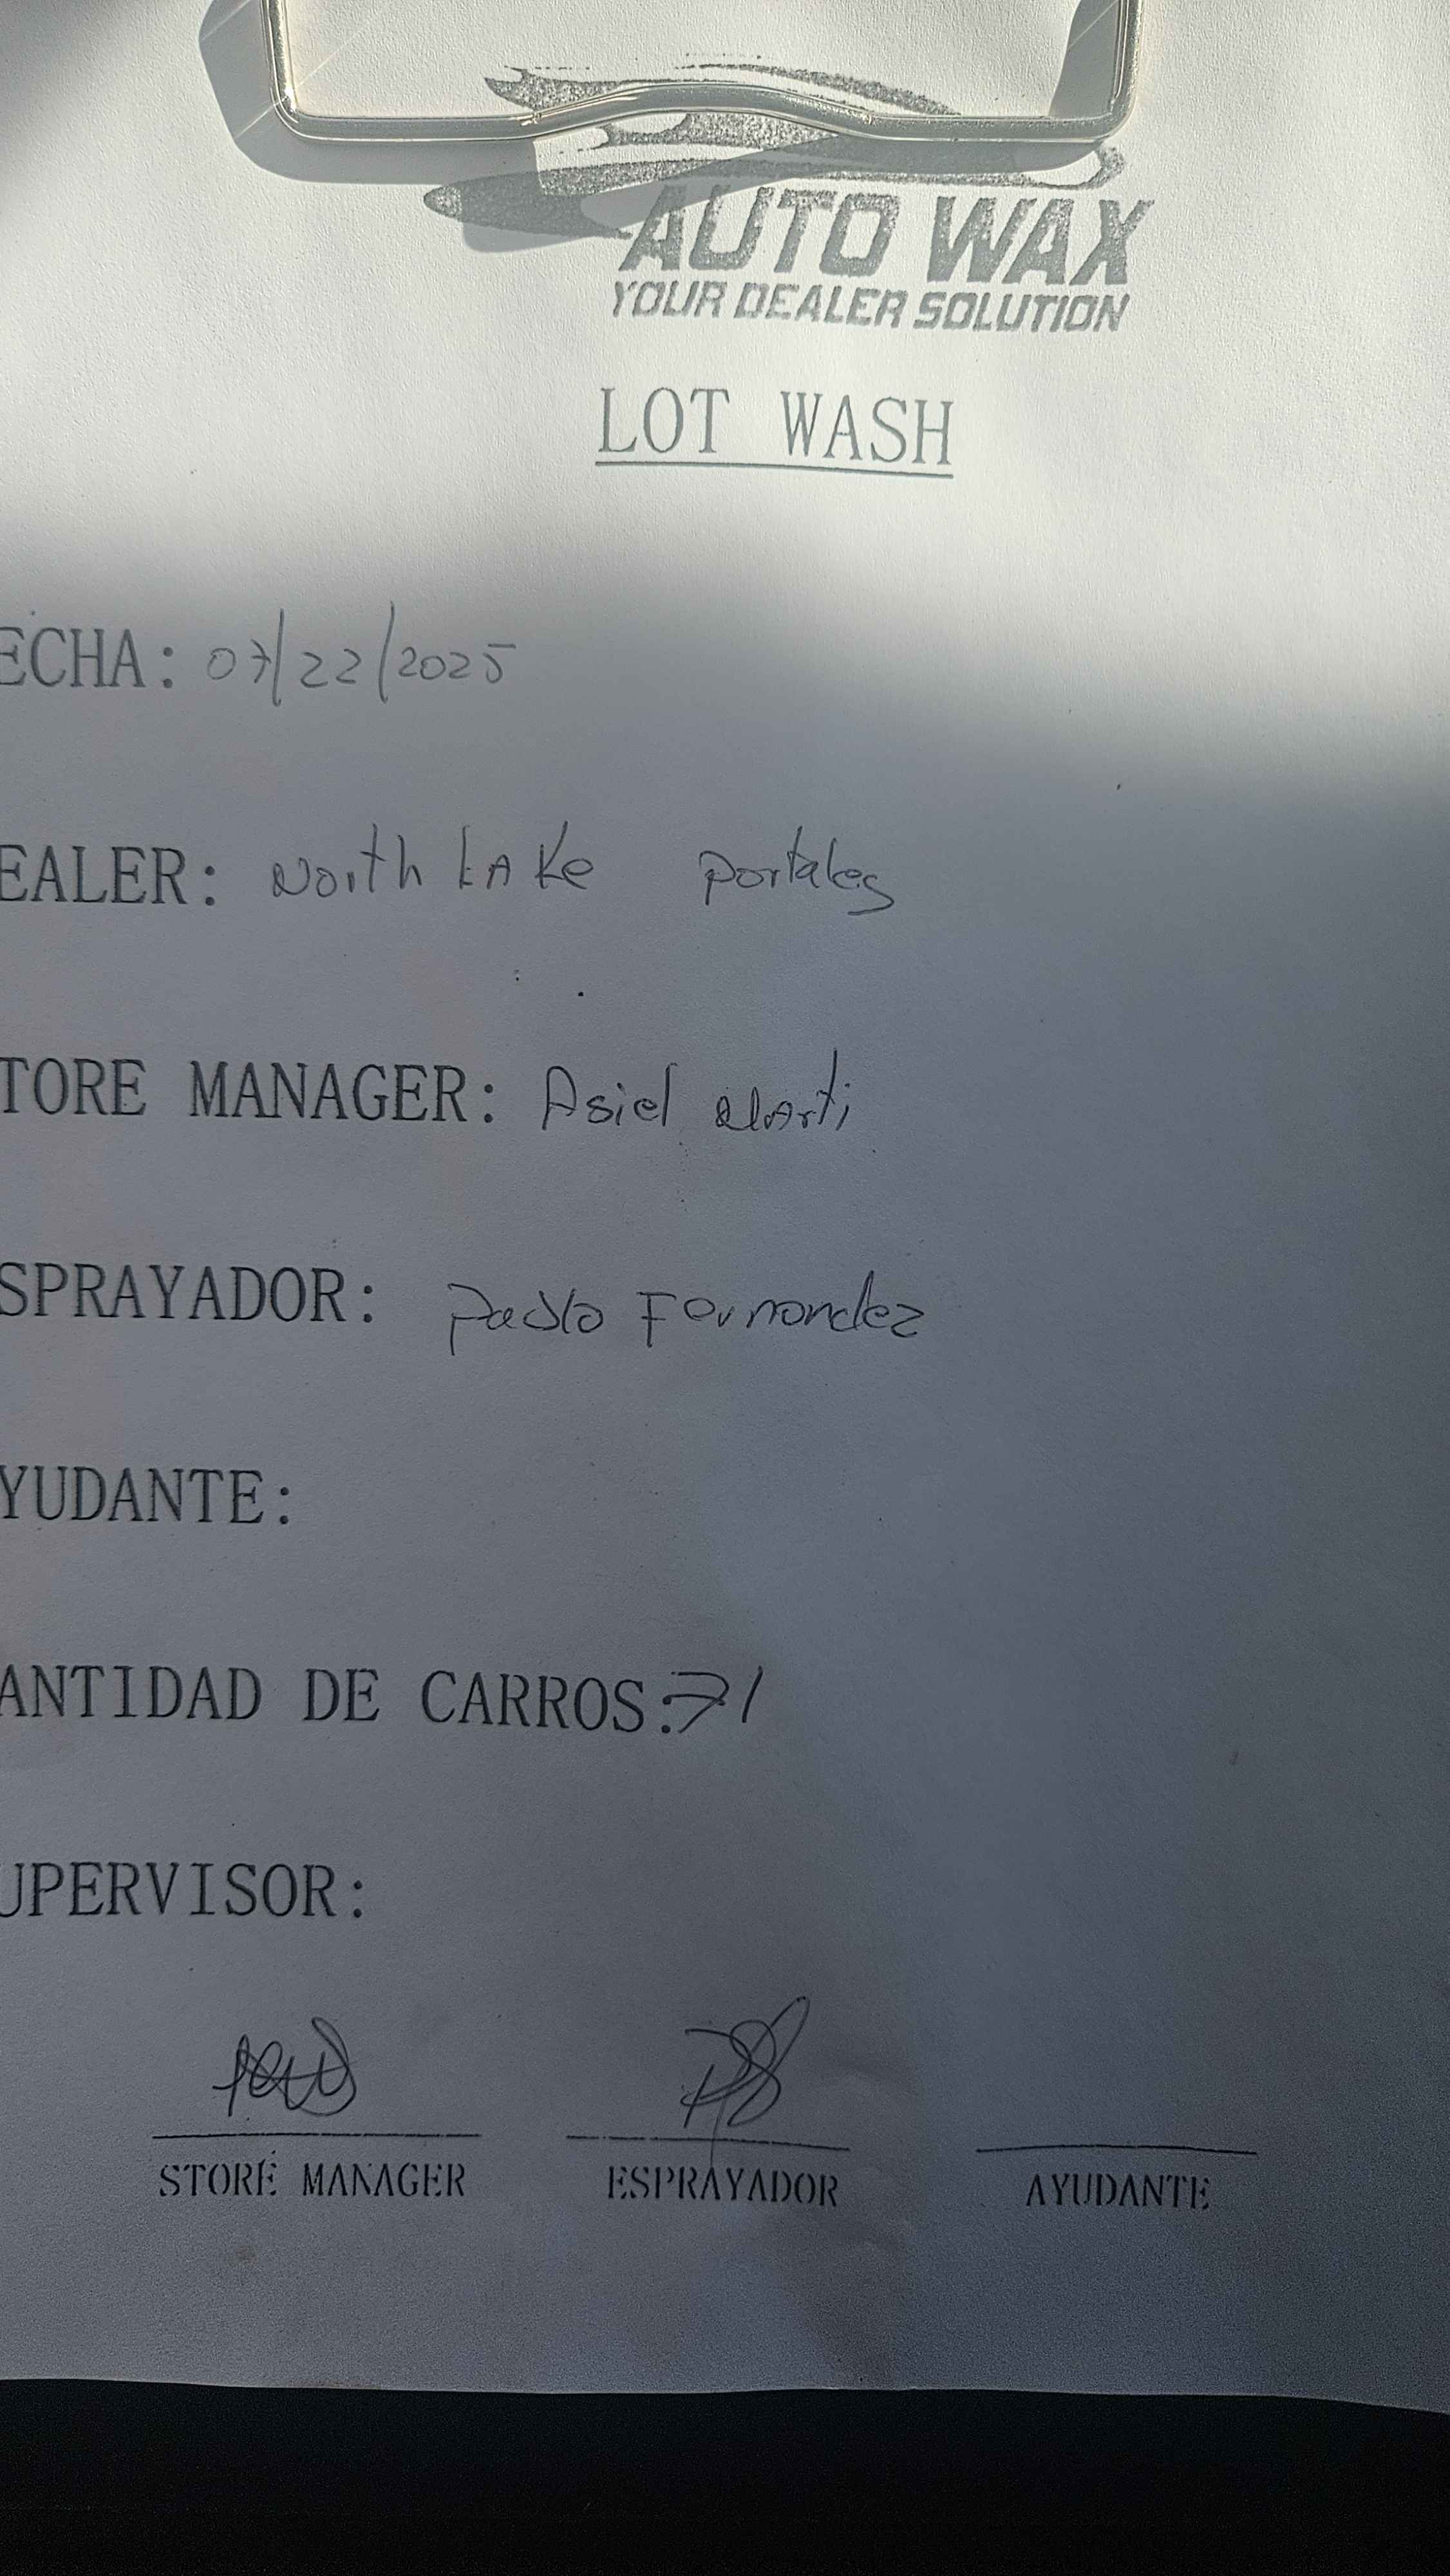 AUTO WAX
YOUR DEALER SOLUTION
LOT WASH
ECHA: 07/22/2025
EALER: North LAKe portales
TORE MANAGER: Asiel Marti
SPRAYADOR: Pablo Fernandez
YUDANTE:
ANTIDAD DE CARROS: 71
UPERVISOR:
STORE MANAGER ESPRAYADOR AYUDANTE